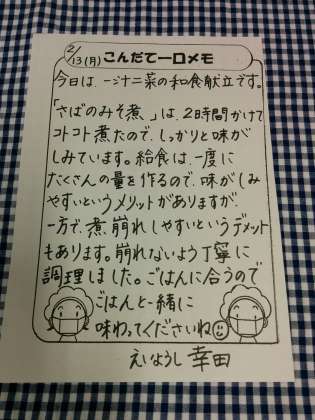 2/13(月) こんだて一口メモ
今日は、一汁二菜の和食献立です。
「さばのみそ煮」は、2時間かけて
コトコト煮たので、しっかりと味が
しみています。給食は、一度に
たくさんの量を作るので、味がしみ
やすいというメリットがありますが、
一方で、煮崩れしやすいというデメット
もあります。崩れないよう丁寧に
調理しました。ごはんに合うので
ごはんと一緒に
味わってくださいね
えいようし 幸田